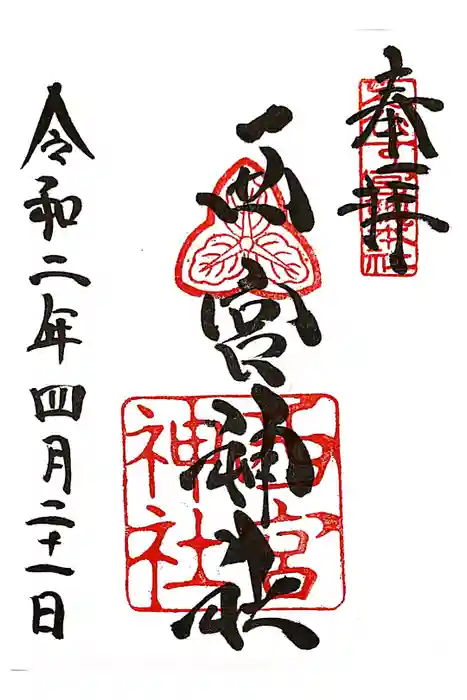 奉拝
西宮神社
西宮
神社
令和二年四月二十一日